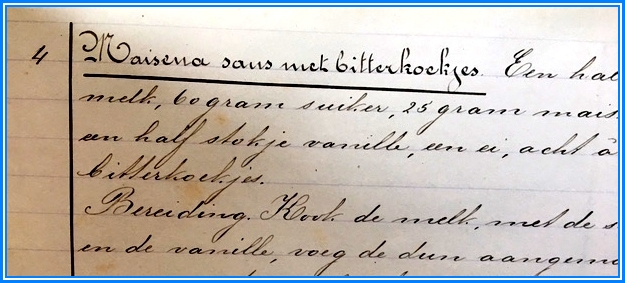 4 Maisena saus met bitterkoekjes. Een hal
melk, 60 gram suiker, 25 gram mais
een half stokje vanille, een ei, acht à
bitterkoekjes.
Bereiding. Kook de melk, met de s
en de vanille, voeg de dun aangem